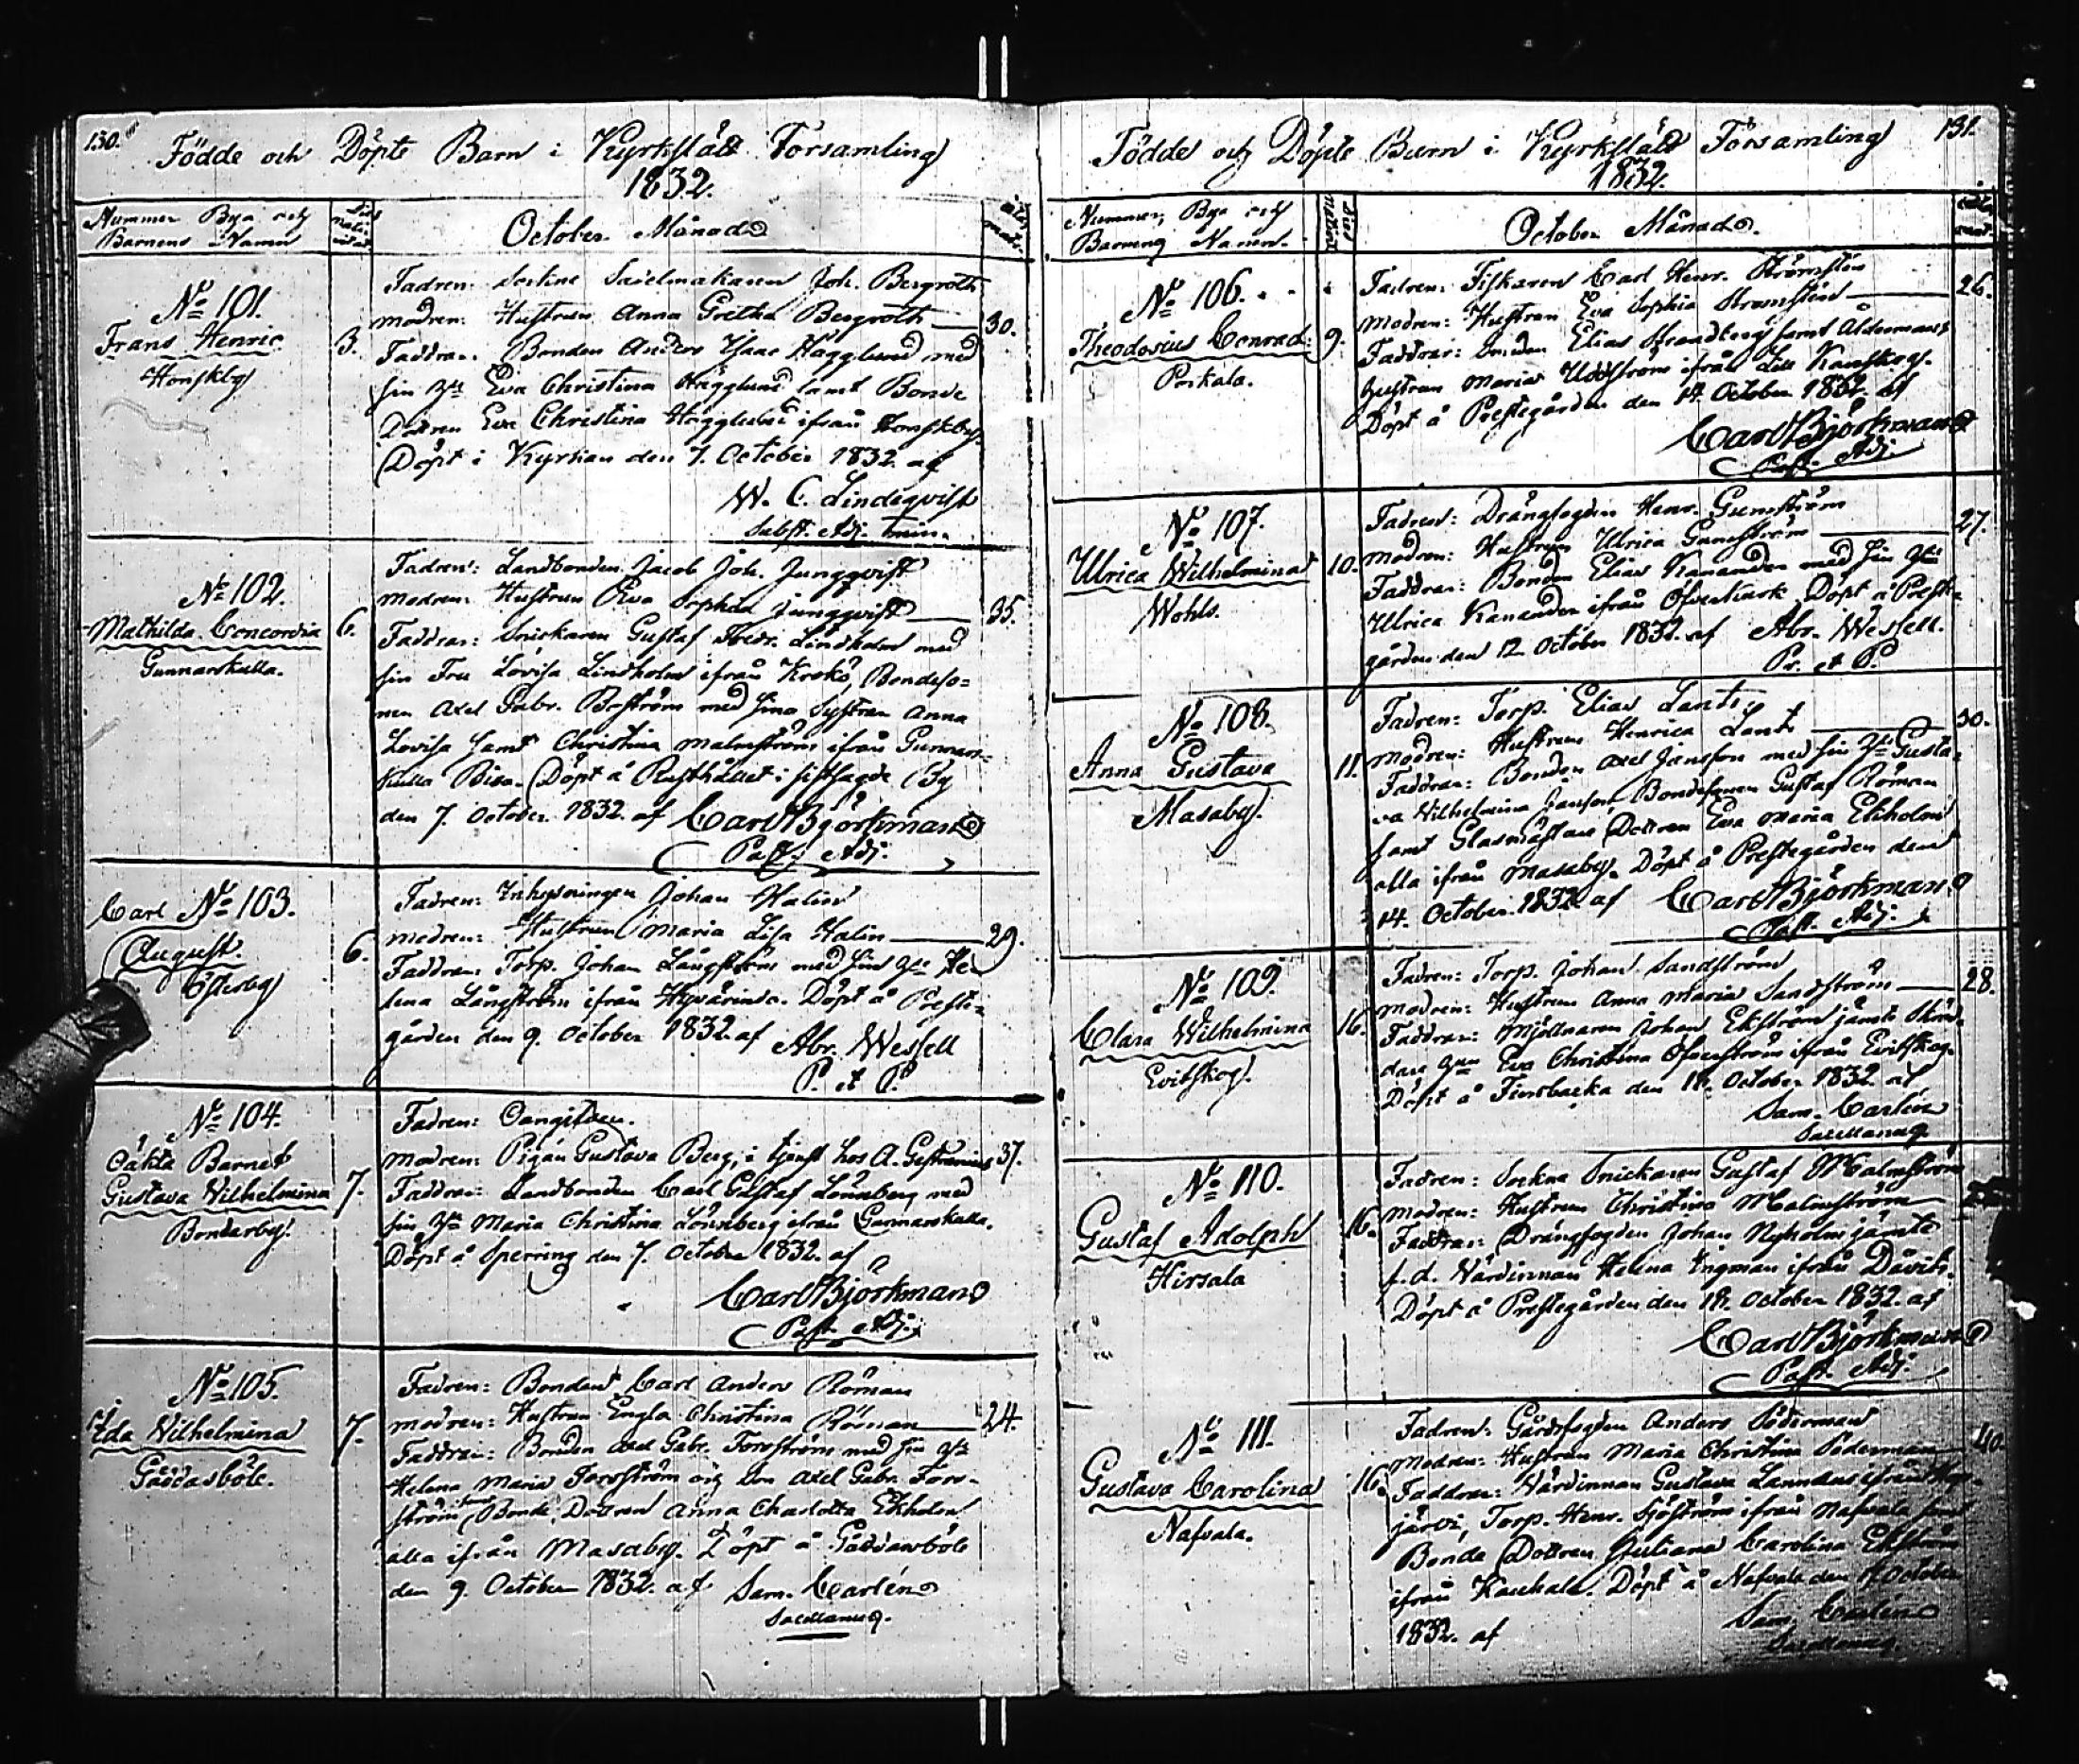 130.
Födde och Döpte Barn i Kyrkslätt Församling
1832.
Nummer Bya och
Barnens Namn
October Månad
No 101.
Frans Henric
Honskby
3.
Fadren: Sadelmakaren Joh. Bergroth
Modren: Hustrun Anna Greta Bergroth
30.
Faddrar: Bonden Anders Isaac Hägglund med
sin Eva Christina Hägglund samt Bonde
Dottren Eva Christina Hägglund ifrån Honskby.
Döpt i Kyrkan den 7. October 1832. af
W. C. Lindeqvist
Subst. Adj. min.
No 102.
Mathilda Concordia
Gunnarskulla.
6.
Fadren: Landbonden Jacob Joh. Jungqvist
Modren: Hustrun Eva Sophia Jungqvist
35.
Faddrar: Snickaren Gustaf Fredr. Lindholm med
sin Fru Lovisa Lindholm ifrån Krokö, Bondeso=
nen Axel Gabr. Boström med sina Systrar Anna
Lovisa samt Christina Malmström ifrån Gunnars-
kulla Döpt å Rusthållet i sistsagde By
den 7. October 1832. af Carl Björkman
Past. Adj.
No 103.
Carl
August.
Österby
6.
Fadren: Inhysningen Johan Halin
Modren: Hustrun Maria Lisa Halin
29.
Faddrar: Torp. Johan Långström med sin He
lena Långström ifrån Hyvärinda. Döpt å Preste=
gården den 9. October 1832. af Abr. Wessell
P. et P.
No 104.
Oäkta Barnet
Gustava Wilhelmina
Bondarby.
7.
Fadren: Oangifven.
Modren: Pigan Gustava Berg, i tjenst hos A. Gestranius
37.
Faddrar: Landbonden Carl Gustaf Lönnberg med
sin Maria Christina Lönnberg ifrån Gunnarskulla.
Döpt å Sperring den 7. October 1832. af
Carl Björkman
Past. Adj.
No 105.
Ida Wilhelmina
Gäddasböle.
7.
Fadren: Bonden Carl Anders Röman
Modren: Hustrun Engla Christina Röman
24.
Faddrar: Bonden Axel Gabr. Forsström med sin
Helena Maria Forsström och Axel Gabr. Fors-
ström samt Bonde Dottren Anna Charlotta Ekholm
alla ifrån Masaby. Döpt å Gäddasböle
den 9. October 1832. af Sam. Carlén
Sacellanus.
131.
Födde och Döpte Barn i Kyrkslätt Församling
1832.
Nummer, Bya och
Barnens Namn.
October Månad.
No 106.
Theodosius Conrad:
Porkala.
9.
Fadren: Fiskaren Carl Henr. Strömsten
Modren: Hustrun Eva Sophia Strömsten
26.
Faddrar: Elias Strandberg samt Åldermans
hustrun Maria Uddström ifrån Lill Kanskog.
Döpt å Prestegården den 14. October 1832. af
Carl Björkman
Past. Adj.
No 107.
Ulrica Wilhelmina
Wohls.
10.
Fadren: Drängfogden Henr. Gumström
Modren: Hustrun Ulrica Gumström
27.
Faddrar: Bonden Elias Kanander med sin
Ulrica Kanander ifrån Ofvankark. Döpt å Preste-
gården den 12 October 1832. af Abr. Wessell.
Pr. et P.
No 108.
Anna Gustava
Masaby.
11.
Fadren: Torp. Elias Lant
Modren: Hustrun Henrica Lant
30.
Faddrar: Bonden Axel Jansson med sin Gusta-
va Wilhelmina Jansson, Bondesonen Gustaf Röman
samt Glasmästare Dottren Eva Maria Ekholm
alla ifrån Masaby. Döpt å Prestegården den
14. October 1832. af Carl Björkman
Past. Adj.
No 109.
Clara Wilhelmina
Evitskog.
16.
Fadren: Torp. Johan Sandström
Modren: Hustrun Anna Maria Sandström
28.
Faddrar: Mjölnaren Johan Ekström jämte
Eva Christina Öfverström ifrån Evitskog.
Döpt å Finsbacka den 18. October 1832. af
Sam. Carlén
Sacellanus.
No 110.
Gustaf Adolph
Hirsala
16.
Fadren: Sockne Snickaren Gustaf Malmström
Modren: Hustrun Christina Malmström
Faddrar: Drängfogden Johan Nyholm jämte
f. d. Värdinnan Helena Ingman ifrån Dävits.
Döpt å Prestegården den 18. October 1832. af
Carl Björkman
Past. Adj.
No 111.
Gustava Carolina
Nafvala.
16.
Fadren: Gårdsfogden Anders Söderman
Modren: Hustrun Maria Christina Söderman
40.
Faddrar: Värdinnan Gustava ifrån
järvi, Torp. Henr. Sjöström ifrån Nafvala samt
Bonde Dottren Juliana Carolina Ekström
ifrån Kauhala. Döpt å Nafvala den October
1832. af
Sam. Carlén
Sacellanus.